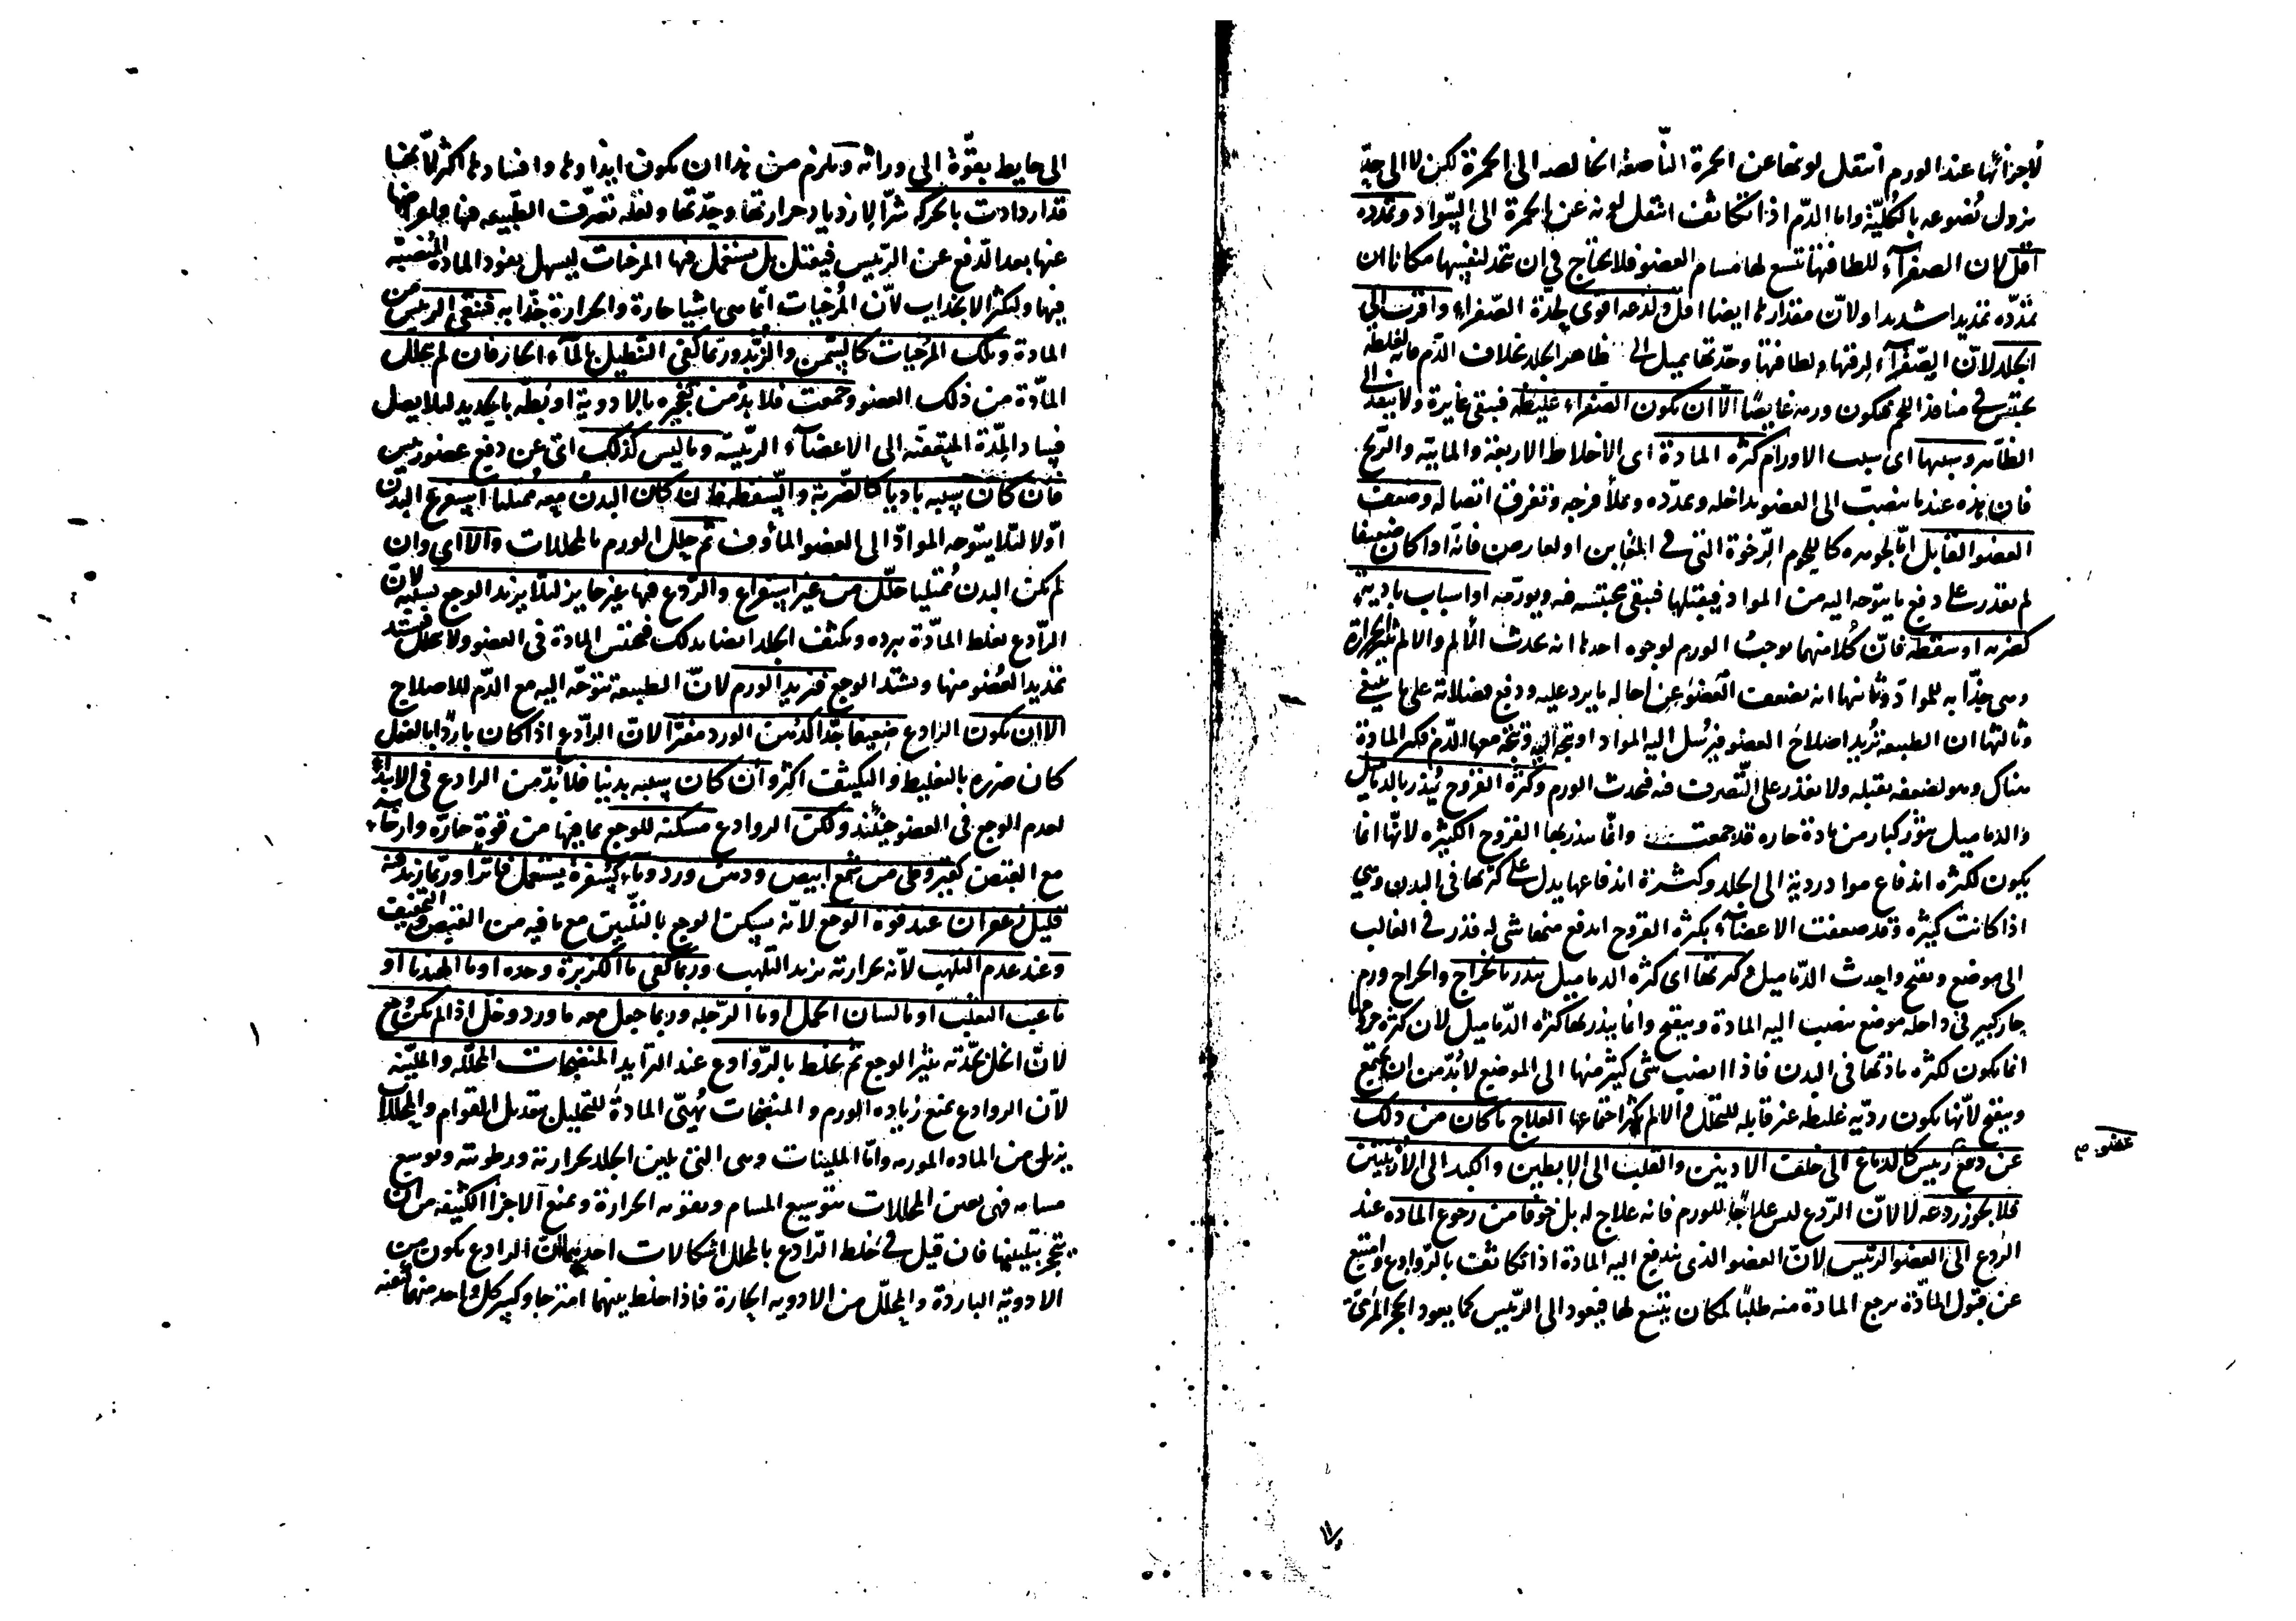 لاجزائها عند الورم انتقل لونها عن الحمرة الناصعة الخالصة الى الحمرة لكن لا الى حد
يزول نصوعه بالكلية واما الدم اذا تكاثف انتقل لونه عن الحمرة الى السواد وتمدده
اقل لان الصفراء للطافتها تتسع لها مسام العضو فلا يحتاج في ان تتخذ لنفسها مكانا ان
تمدده تمديدا شديدا ولان مقدارها ايضا اقل ولذعه اقوى لحدة الصفراء واقرب الى
الجلد لان الصفراء لرقتها ولطافتها وحدتها يميل الى ظاهر الجلد بخلاف الدم فانه لغلظه
يحتبس في منافذ اللحم فيكون ورمه غايصا الا ان يكون الصفراء غليظة فيبقى غايرة ولا ينفذ الى
الظاهر وسببها اى سبب الاورام كثرة المادة اى الاخلاط الاربعة والمايية والريح
فان هذه عند ما ينصب الى العضو يداخله ويمدده ويملأ فرجه وتفرق اتصاله وضعف
العضو القابل اما لجوهره كاللحوم الرخوة التي في المغابن او لعارض فانه اذا كان ضعيفا
لم يقدر على دفع ما يتوجه اليه من المواد فيقبلها فيبقى محتبسة فيه ويورمه او اسباب بادية
كضربة او سقطة فان كلا منهما يوجب الورم لوجوه احدها انه يحدث الالم والالم يثير الحرارة
وهي جذابة للمواد وثانيها انه يضعف العضو عن احالة ما يرد عليه ودفع فضلاته على ما ينبغي
وثالثها ان الطبيعة تريد اصلاح العضو فيرسل اليه المواد او تتجه اليه وتتجه معها الدم فيكثر المادة
هناك وهو لضعفه يقبله ولا يقدر على التصرف فيه فيحدث الورم وكثرة القروح ينذر بالدماميل
والدماميل بثور كبار من مادة حارة قد جمعت وانما ينذر بها القروح الكثيرة لانها انما
يكون لكثرة اندفاع مواد ردية الى الجلد وكثرة اندفاعها يدل على كثرتها في البدن وهي
اذا كانت كثيرة وقد ضعفت الاعضاء بكثرة القروح اندفع منها شئ له قدر في الغالب
الى موضع وتقيح واحدث الدماميل وكثرتها اى كثرة الدماميل ينذر بالخراج والخراج ورم
حار كبير في داخله موضع ينصب اليه المادة ويتقيح وانما ينذر بها كثرة الدماميل لان كثرة خروجها
انما يكون لكثرة مادتها في البدن فاذا انصب شئ كثير منها الى الموضع لا بد من ان يجتمع
ويتقيح لانها يكون ردية غليظة غير قابلة للتحلل والا لم يكثر اجتماعها العلاج ما كان من ذلك
عن دفع رئيس كالدماغ الى خلف الاذنين والقلب الى الابطين والكبد الى الاربيتين
عضو صح
فلا يجوز ردعه لا لان الردع ليس علاجا للورم فانه علاج له بل خوفا من رجوع المادة عند
الردع الى العضو الرئيس لان العضو الذى يندفع اليه المادة اذا تكاثف بالروادع وامتنع
عن قبول المادة يرجع المادة منه طلبا لمكان يتسع لها فيعود الى الرئيس كما يعود الحجر المرمى
الى حايط بقوة الى ورائه ويلزم من هذا ان يكون ايذاؤها وافسادها اكثر لانها
قد ازدادت بالحركة شرا لازدياد حرارتها وحدتها ولقلة تصرف الطبيعة فيها ولاعراضها
عنها بعد الدفع عن الرئيس فيقتل بل يستعمل فيها المرخيات ليسهل نفوذ المادة المنصبة
فيها وليكثر الانجذاب لان المرخيات انما هي اشيا حارة والحرارة جذابة فينقى الرئيس من
المادة وتلك المرخيات كالسمن والزبد وربما كفى التنطيل بالماء الحار فان لم يتحلل
المادة من ذلك العضو وجمعت فلا بد من تفجيره بالادوية او بطه بالحديد لئلا يصل
فساد المدة المتعفنة الى الاعضاء الرئيسة وما ليس كذلك اى عن دفع عضو رئيس
فان كان سببه باديا كالضربة والسقطة فان كان البدن معه ممتليا استفرغ البدن
اولا لئلا يتوجه المواد الى العضو المأوف ثم حلل الورم بالمحللات والا اى وان
لم يكن البدن ممتليا حلل من غير استفراغ والردع فيها غير جايز لئلا يزيد الوجع بسببه لان
الرادع يغلظ المادة ببرده ويكثف الجلد ايضا بذلك فيحتبس المادة في العضو ولا يتحلل فيشتد
تمديد العضو منها ويشتد الوجع فيزيد الورم لان الطبيعة تتوجه اليه مع الدم للاصلاح
الا ان يكون الرادع ضعيفا جدا كدهن الورد مفترا لان الرادع اذا كان باردا بالفعل
كان ضرره بالتغليظ والتكثيف اكثر وان كان سببه بدنيا فلا بد من الرادع في الابتداء
لعدم الوجع في العضو حينئذ ولكن الروادع مسكنة للوجع بما فيها من قوة حارة وارخاء
مع القبض كقيروطى من شمع ابيض ودهن ورد وماء كسفرة يستعمل فاترا وربما زيد فيه
قليل زعفران عند قوة الوجع لانه يسكن الوجع بالتليين مع ما فيه من القبض والتجفيف
وعند عدم التلهب لانه بحرارته يزيد التلهب وربما كفى ماء الكزبرة وحده او ماء الهندبا او
ماء عنب الثعلب او ماء لسان الحمل او ماء الرجلة وربما جعل معه ماء ورد وخل اذا لم يكن وجع
لان الخل بحدته يثير الوجع ثم يخلط بالروادع عند التزايد المنضجات المحللة والملينة
لان الروادع يمنع زيادة الورم والمنضجات يهيئ المادة للتحليل بتعديل القوام والمحللات
يزيل من المادة المورمة واما الملينات وهي التي يلين الجلد بحرارته ورطوبته وتوسع
مسامه فهي يعين المحللات بتوسيع المسام وتقوية الحرارة ويمنع الاجزا الكثيفة من ان
يتحجر بتليينها فان قيل في خلط الرادع بالمحلل اشكالات احدها ان الرادع يكون من
الادوية الباردة والمحلل من الادوية الحارة فاذا خلط بينهما امتزجا وكسر كل واحد منهما